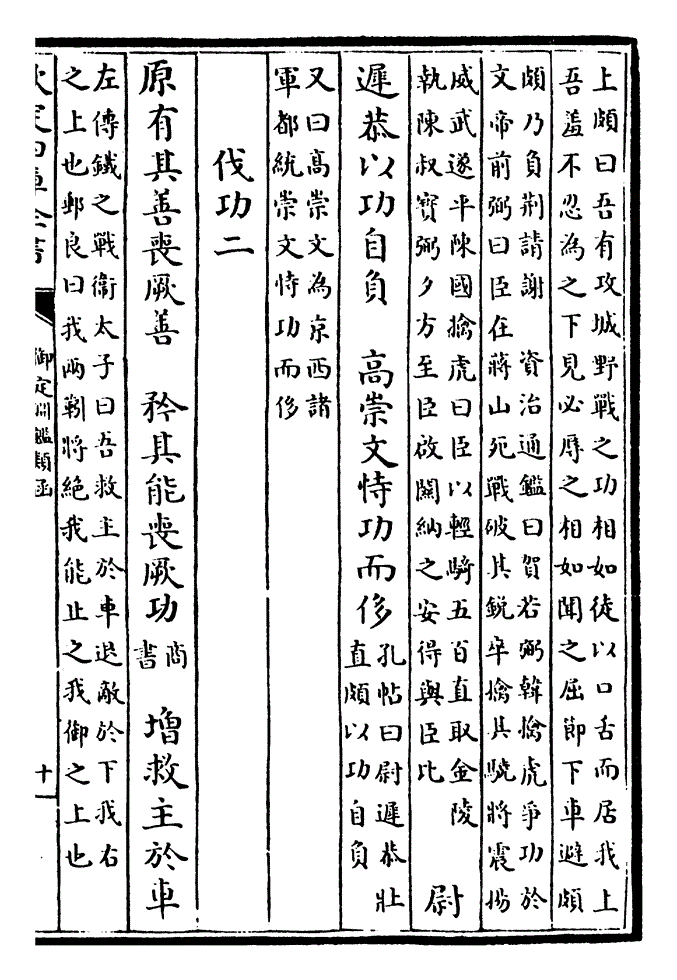 上頗曰吾有攻城野戰之功相如徒以口舌而居我上
吾羞不忍為之下見必辱之相如聞之屈節下車避頗
頗乃負荆請謝　資治通鑑曰賀若弼韓擒虎爭功於
文帝前弼曰臣在蔣山死戰破其銳卒擒其驍將震揚
威武遂平陳國擒虎曰臣以輕騎五百直取金陵
執陳叔寳弼夕方至臣啟關納之安得與臣比
尉
遲恭以功自負　高崇文恃功而侈
孔帖曰尉遲恭壮
直頗以功自負
又曰高崇文為京西諸
軍都統崇文恃功而侈
伐功二
原有其善喪厥善　矜其能喪厥功
商
書
增救主於車
左傳鐵之戰衞太子曰吾救主於車退敵於下我右
之上也郵良曰我兩靷將絶我能止之我御之上也
欽定四庫全書
御定淵鑑類函
十